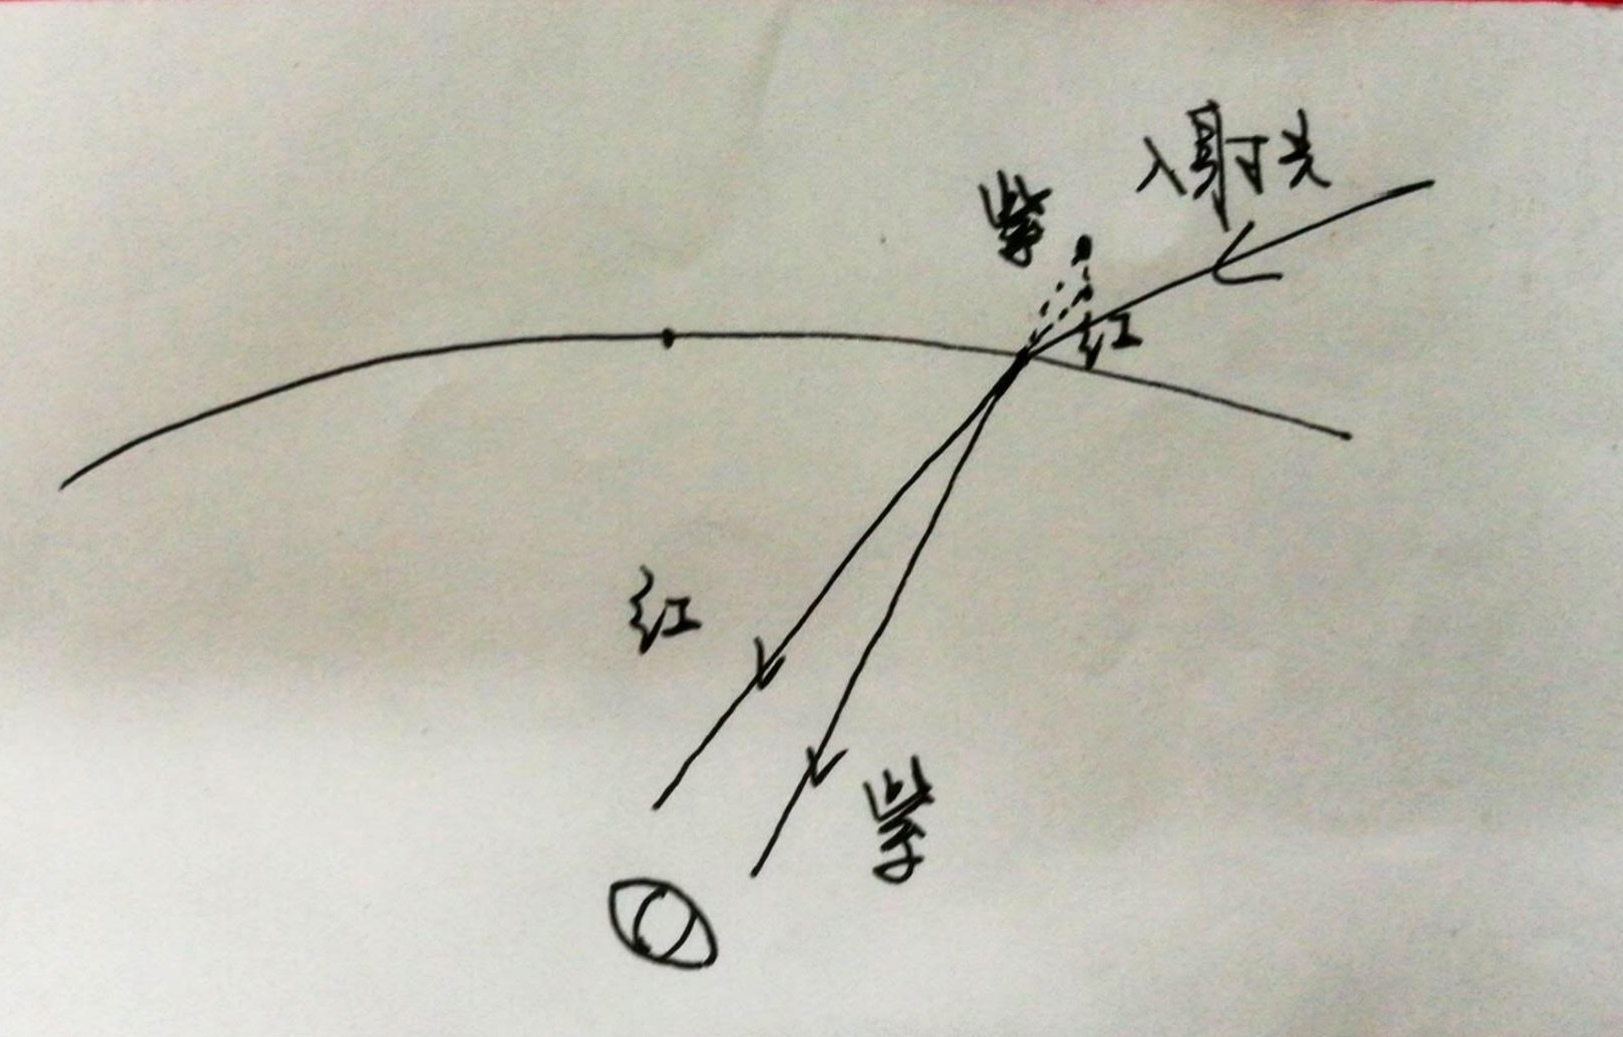 入射光
紫
红
红
紫